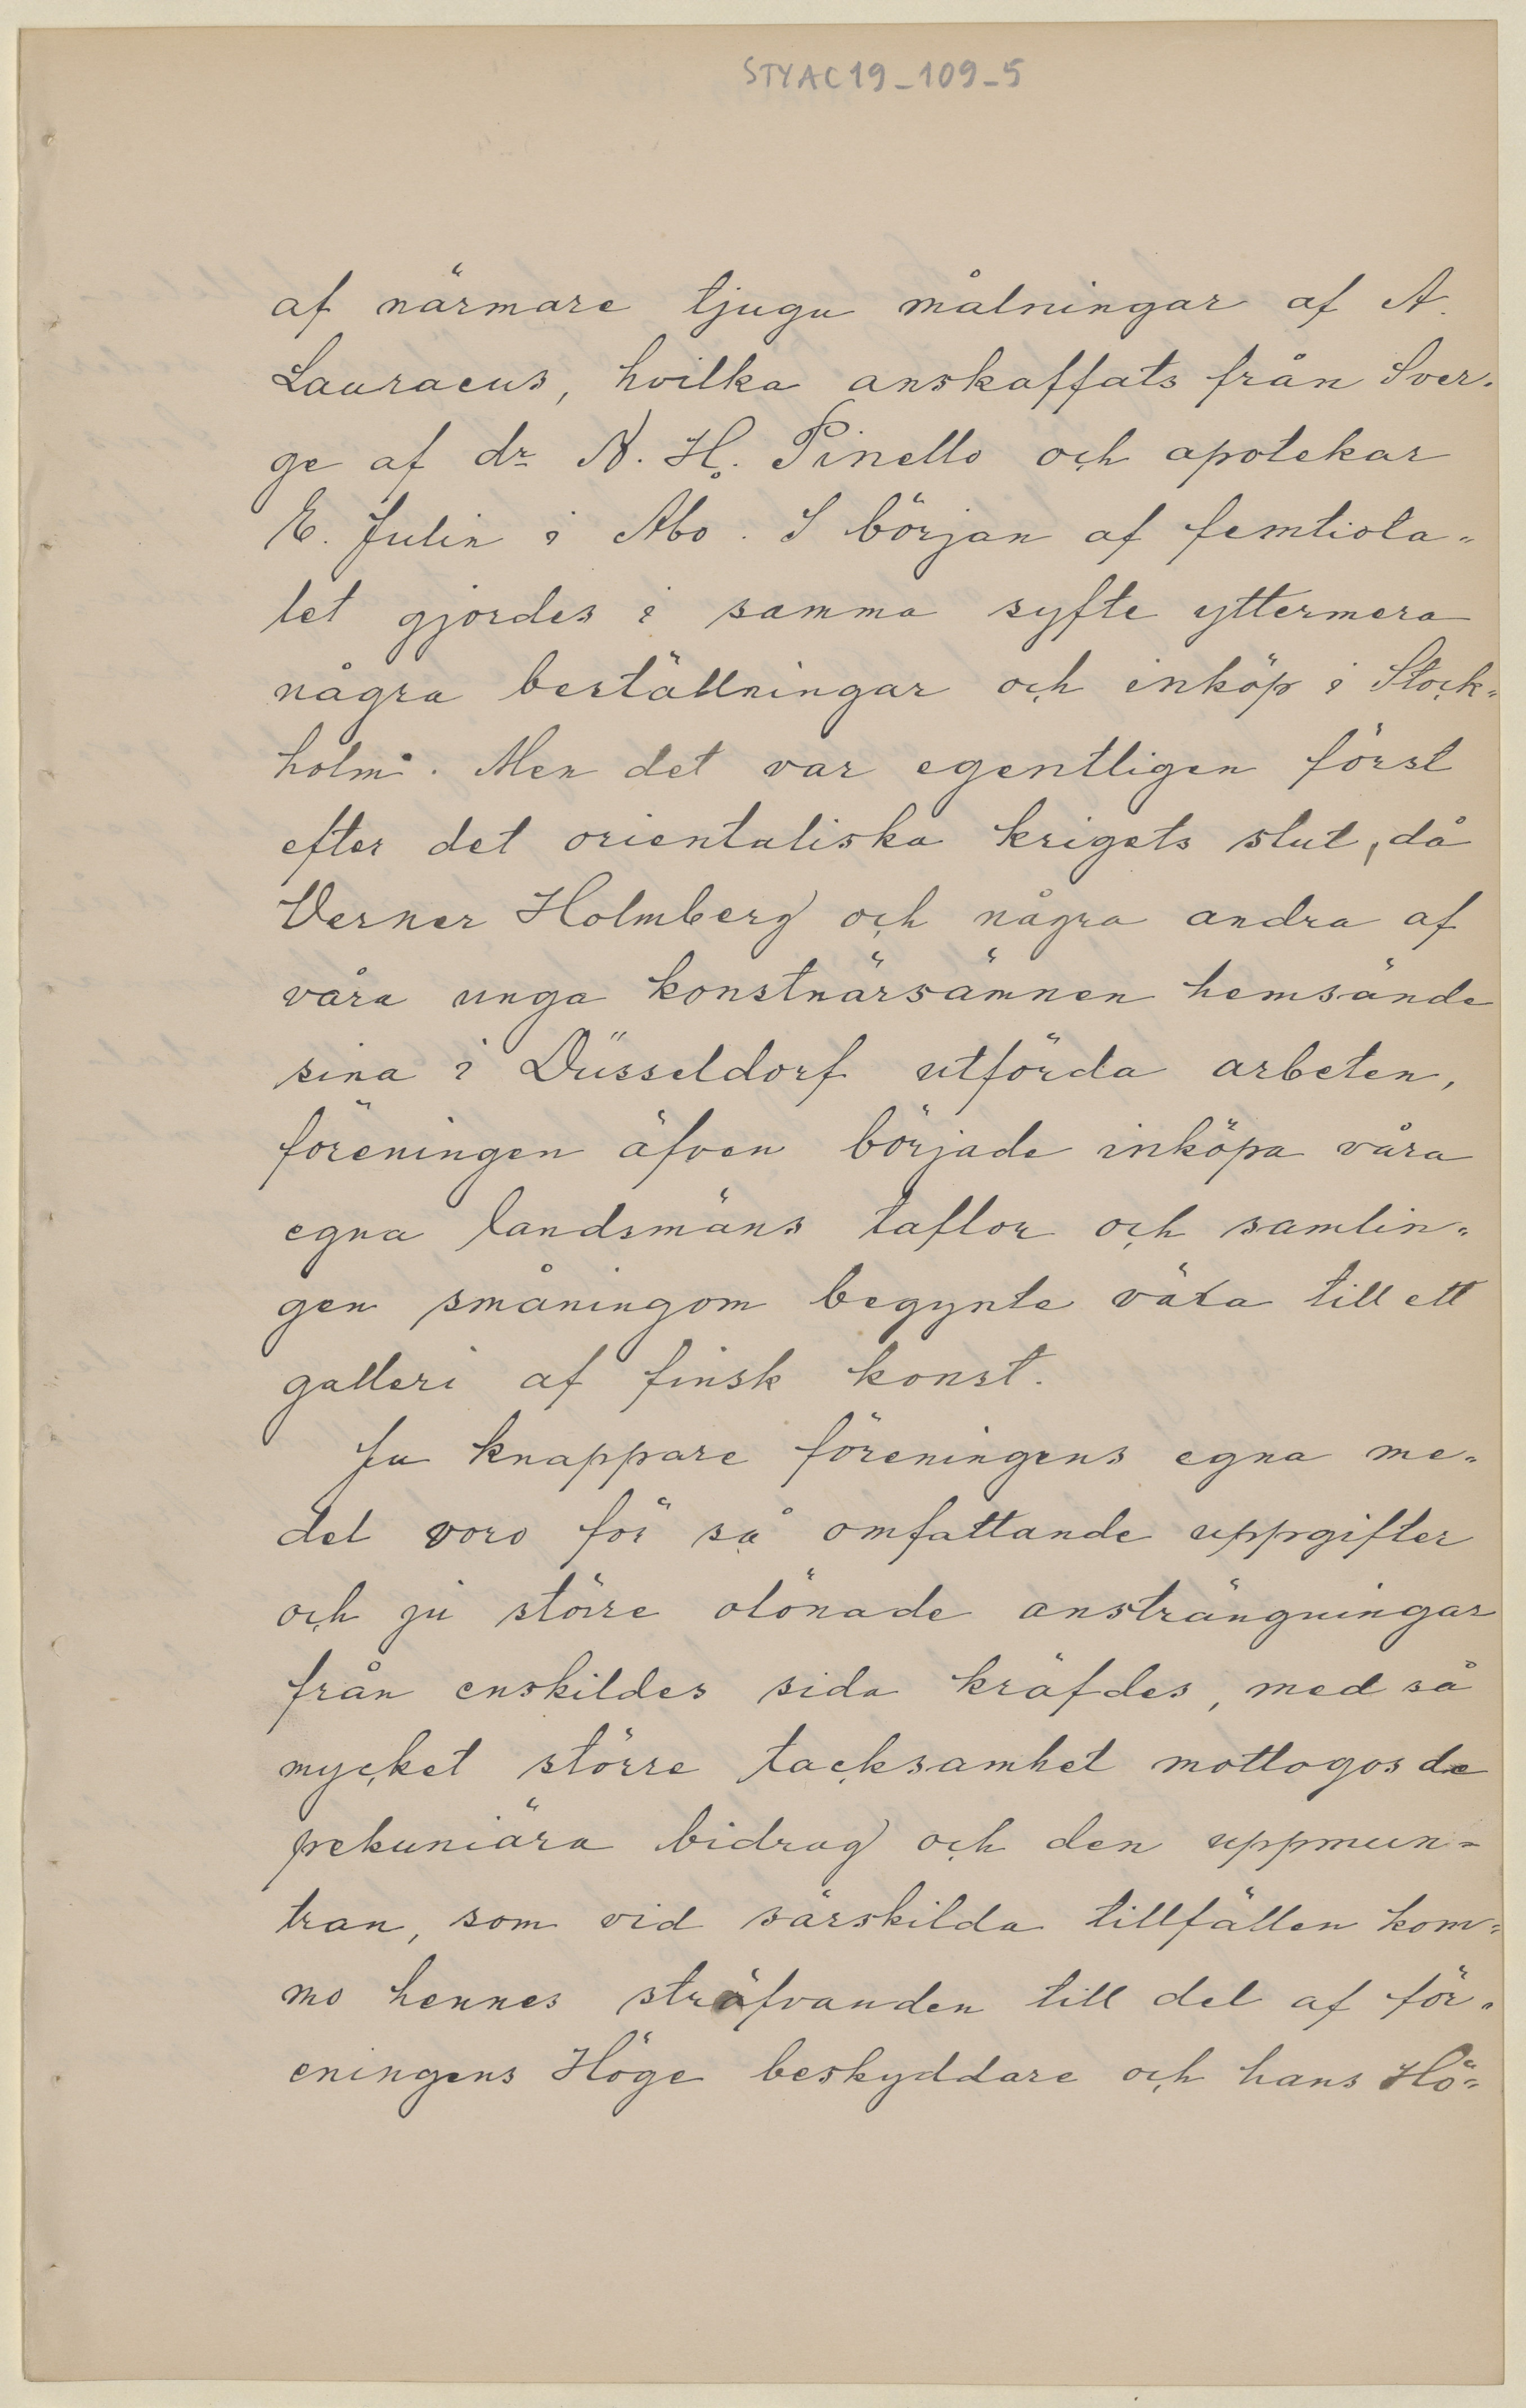 STYAC19_109_5
af närmare tjugu målningar af A.
Lauraeus, hvilka anskaffats från Sver-
ge af dr N. H. Pinello och apotekar
E. Julin i Åbo. I början af femtiota-
let gjordes i samma syfte yttermera
några beställningar och inköp i Stock-
holm. Men det var egentligen först
efter det orientaliska krigets slut, då
Verner Holmberg och några andra af
våra unga konstnärsämnen hemsände
sina i Düsseldorf utförda arbeten,
föreningen äfven började inköpa våra
egna landsmäns taflor och samlin-
gen småningom begynte växa till ett
galleri af finsk konst.
Ju knappare föreningens egna me-
del voro för så omfattande uppgifter
och ju större olönade ansträngningar
från enskildes sida kräfdes, med så
mycket större tacksamhet mottogos de
pekuniära bidrag och den uppmun-
tran, som vid särskilda tillfällen kom-
mo hennes sträfvanden till del af för-
eningens Höge beskyddare och hans Hö-